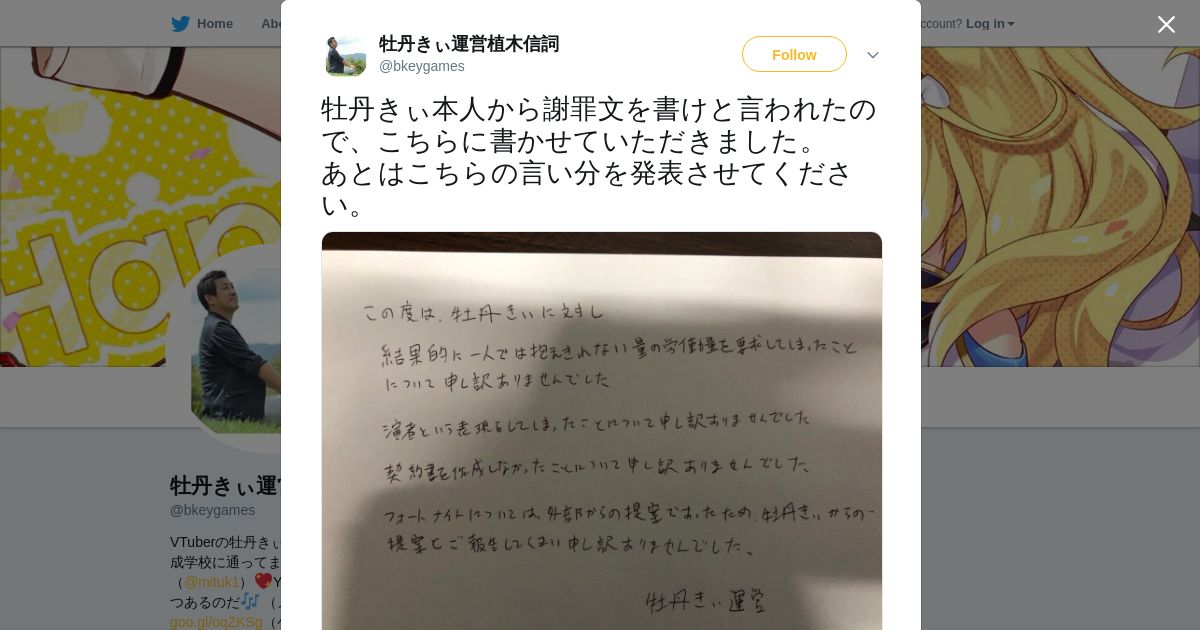 Home
Abo
ccount? Log in
牡丹きぃ運営植木信詞
@bkeygames
Follow
牡丹きぃ本人から謝罪文を書けと言われたの
で、こちらに書かせていただきました。
あとはこちらの言い分を発表させてくださ
い。
この度は、牡丹きぃに対し
結果的に一人では抱えきれない量の労働量を要求してしまったこと
について申し訳ありませんでした
演者という表現をしてしまったことについて申し訳ありませんでした
契約書を作成しなかったことについて申し訳ありませんでした
フォートナイトについては、外部からの提案であったため、牡丹きぃからの
提案とご報告してしまい申し訳ありませんでした、
牡丹きぃ運営
Han
牡丹きぃ運営
@bkeygames
VTuberの牡丹きぃ
成学校に通ってま
（@mituk1）❤Y
つあるのだ🎶（
goo.gl/oqZKSg（